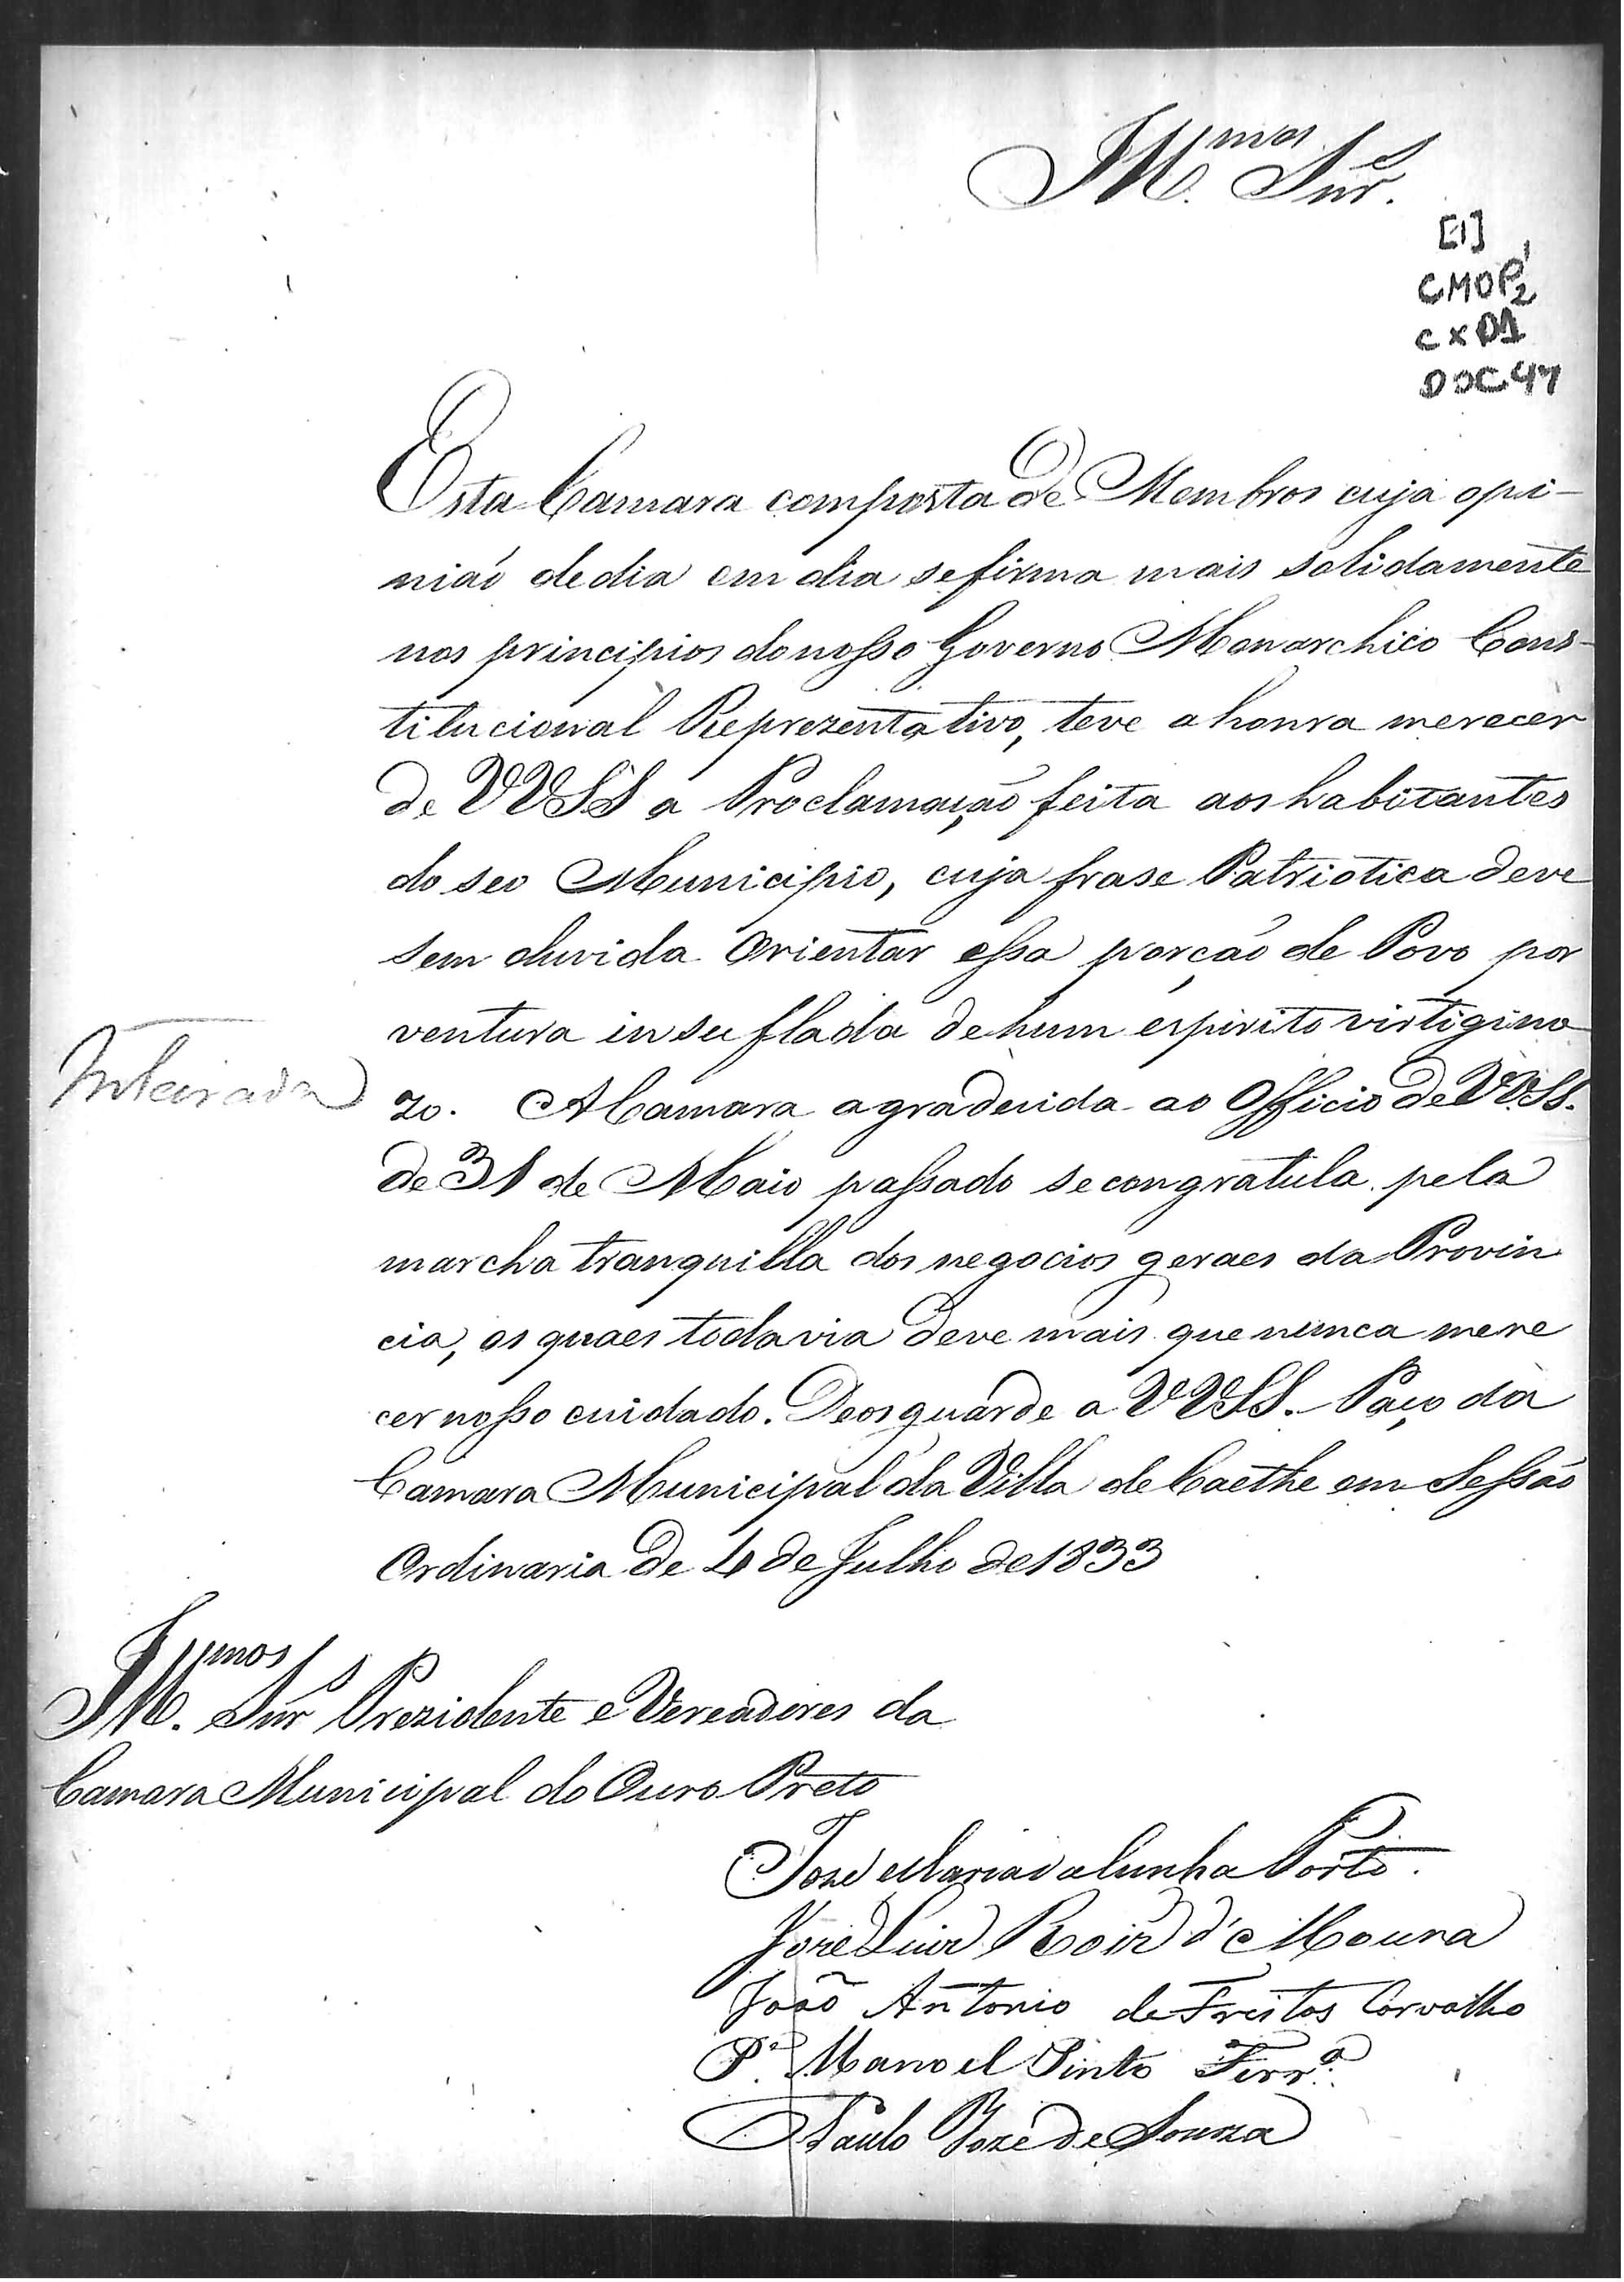 Ill.mos Snr.s
[1]
CMOP 1/2
CX 01
DOC 47
Esta Camara composta de Membros cuja opi-
nião de dia em dia se firma mais solidamente
nos principios do nosso Governo Monarchico Cons-
titucional Reprezentativo, teve a honra merecer
de VVSS a Proclamação feita aos habitantes
do seo Municipio, cuja frase Patriotica deve
sem duvida orientar essa porção de Povo por
ventura insuflada de hum espirito virtigino
zo. A Camara agradecida ao Officio de VVSS.
de 31 de Maio passado se congratula pela
marcha tranquilla dos negocios geraes da Provin
cia, os quaes todavia deve mais que nunca mere
cer nosso cuidado. Deos guarde a VVSS. Paço da
Camara Municipal da Villa de Caethe em Sessão
Ordinaria de 4 de Julho de 1833
Inteirada
Ill.mos Snr.s Prezidente e Vereadores da
Camara Municipal do Ouro Preto
Joze Maria da Cunha Porto.
Joze Luiz Roiz d'Moura
João Antonio de Freitas Carvalho
P.e Manoel Pinto Ferr.a
Paulo Joze de Souza